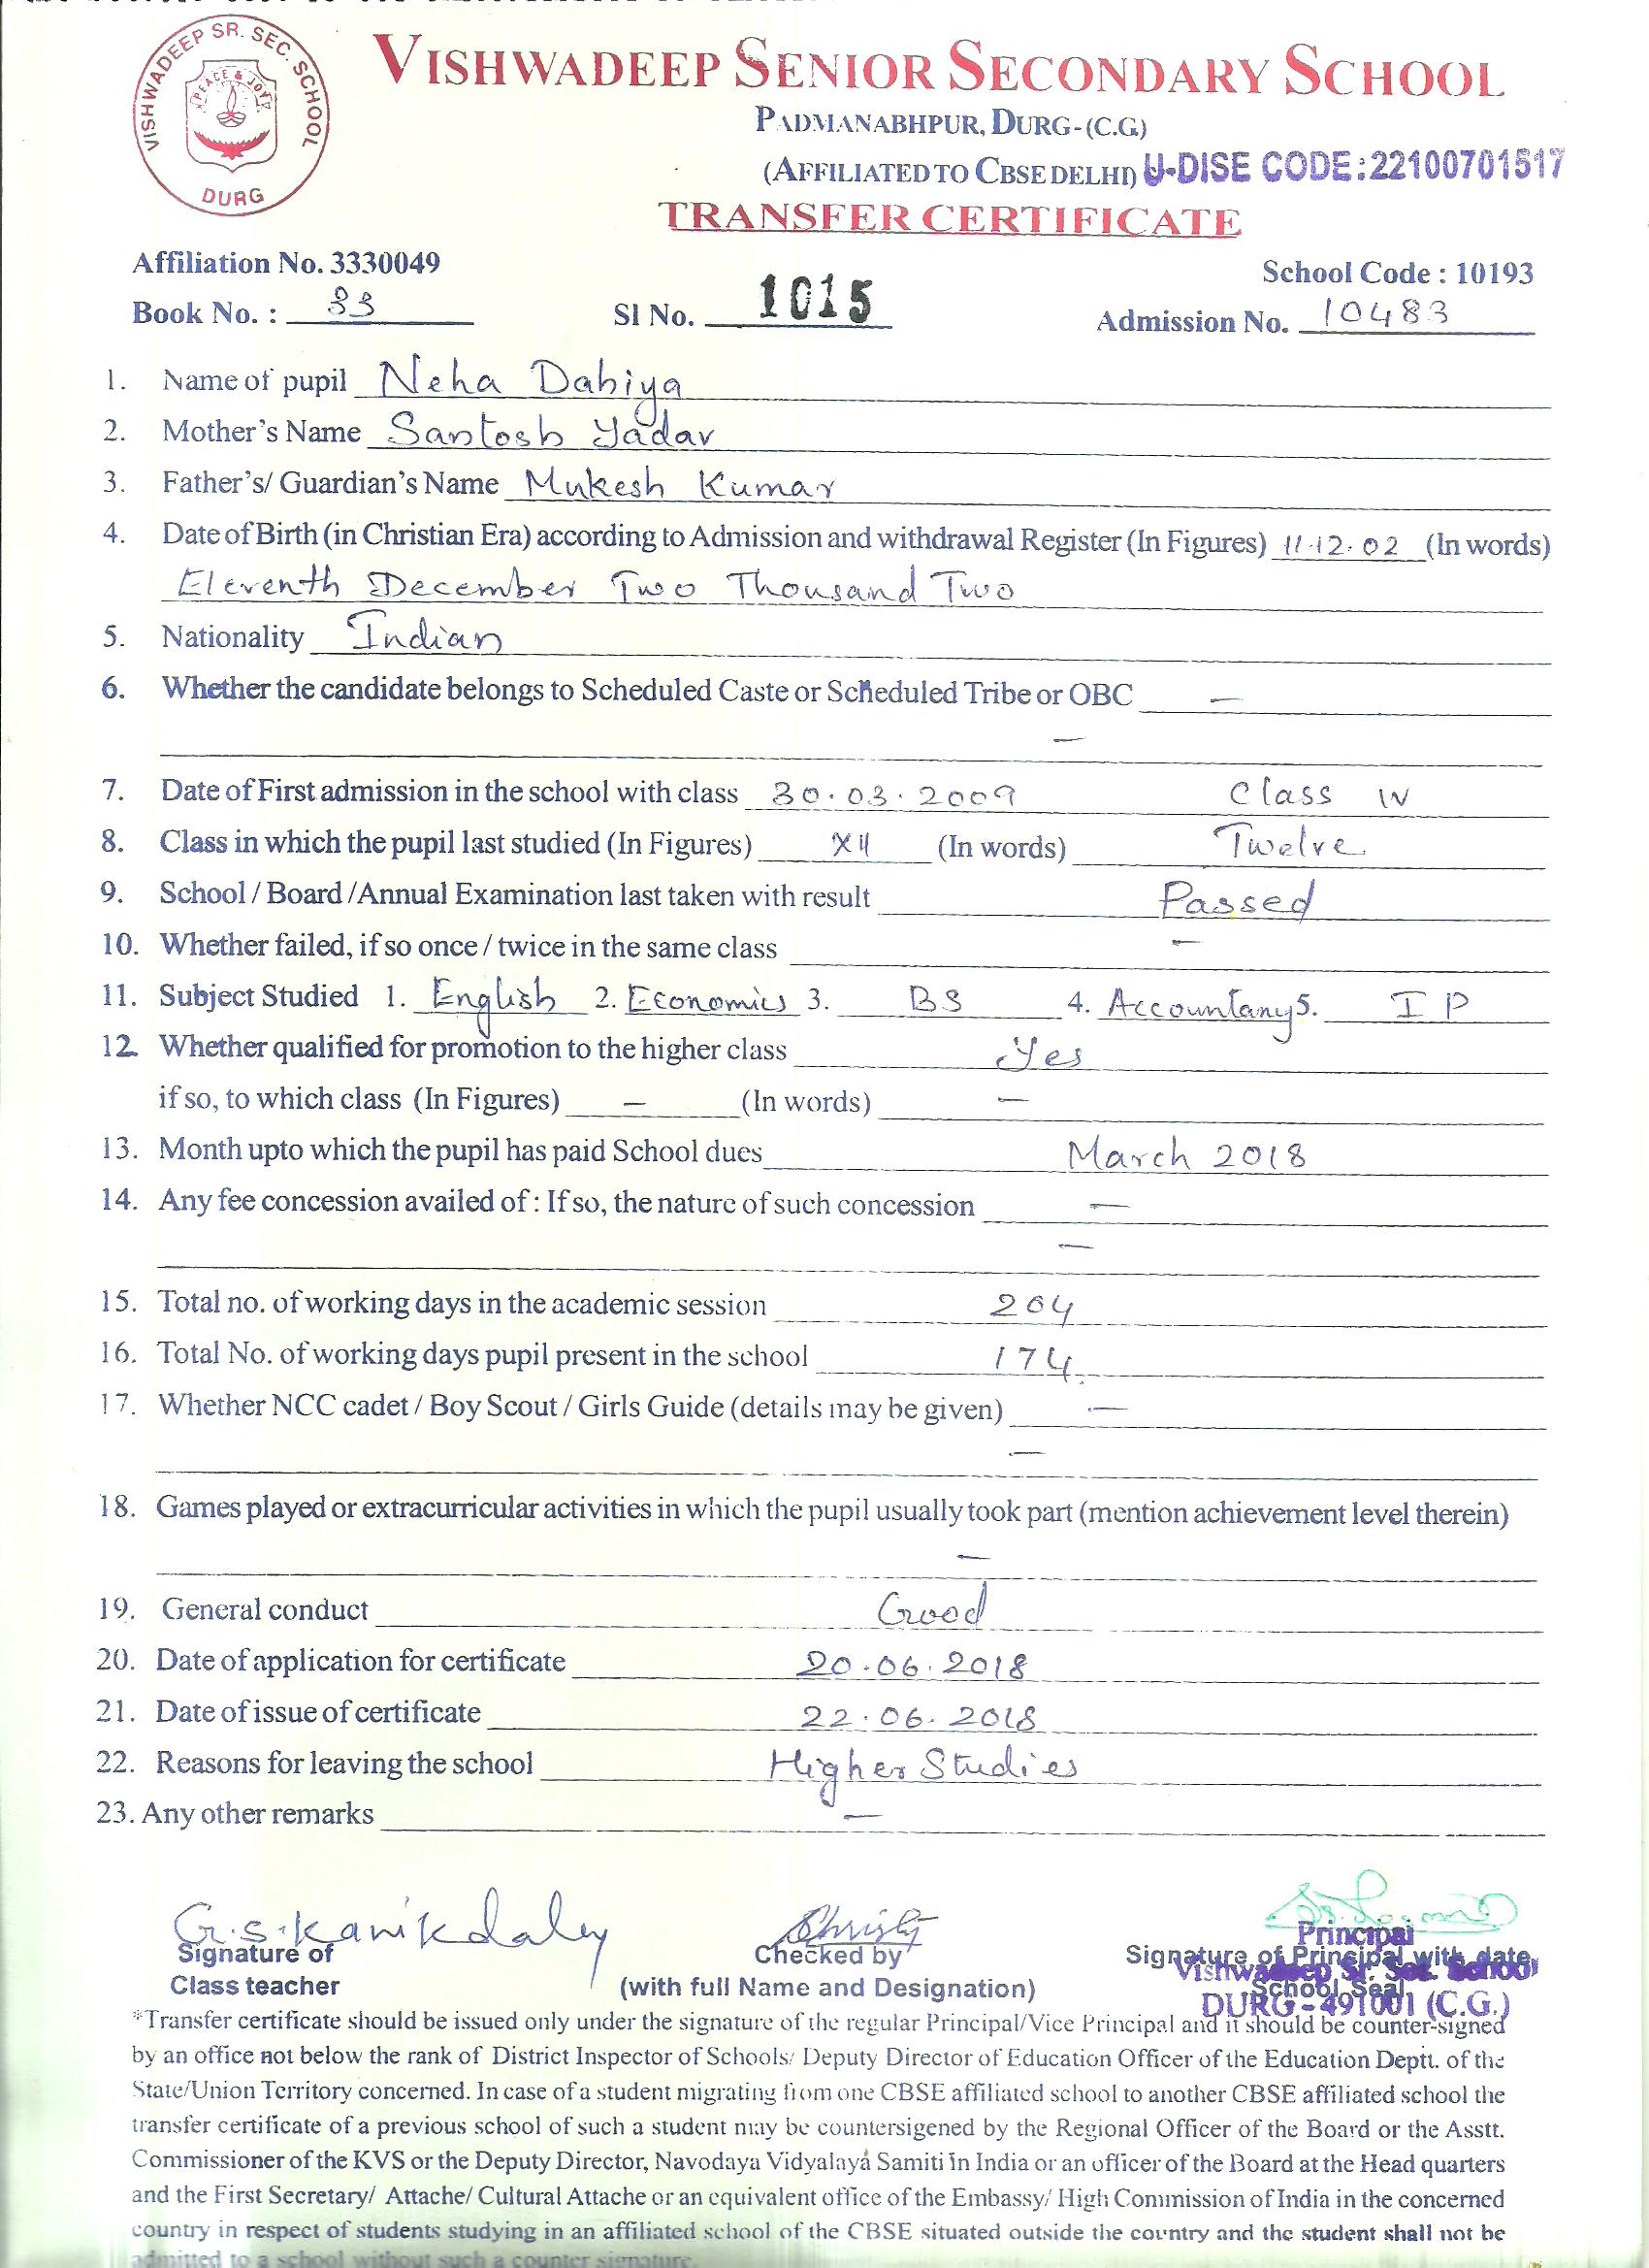 VISHWADEEP SR. SEC. SCHOOL
PEACE & JOY
DURG
VISHWADEEP SENIOR SECONDARY SCHOOL
PADMANABHPUR, DURG-(C.G.)
(AFFILIATED TO CBSE DELHI) U-DISE CODE:22100701517
TRANSFER CERTIFICATE
Affiliation No. 3330049
School Code : 10193
Book No. : 33 Sl No. 1015 Admission No. 10483
1. Name of pupil Neha Dahiya
2. Mother's Name Santosh Yadav
3. Father's/ Guardian's Name Mukesh Kumar
4. Date of Birth (in Christian Era) according to Admission and withdrawal Register (In Figures) 11.12.02 (In words)
Eleventh December Two Thousand Two
5. Nationality Indian
6. Whether the candidate belongs to Scheduled Caste or Scheduled Tribe or OBC —
—
7. Date of First admission in the school with class 30.03.2009 Class IV
8. Class in which the pupil last studied (In Figures) XII (In words) Twelve
9. School / Board /Annual Examination last taken with result Passed
10. Whether failed, if so once / twice in the same class —
11. Subject Studied 1. English 2. Economics 3. BS 4. Accountany 5. IP
12. Whether qualified for promotion to the higher class Yes
if so, to which class (In Figures) — (In words) —
13. Month upto which the pupil has paid School dues March 2018
14. Any fee concession availed of : If so, the nature of such concession —
—
15. Total no. of working days in the academic session 204
16. Total No. of working days pupil present in the school 174
17. Whether NCC cadet / Boy Scout / Girls Guide (details may be given) —
—
18. Games played or extracurricular activities in which the pupil usually took part (mention achievement level therein)
—
19. General conduct Good
20. Date of application for certificate 20.06.2018
21. Date of issue of certificate 22.06.2018
22. Reasons for leaving the school Higher Studies
23. Any other remarks —
G.S. Christy
Principal
Signature of Checked by Signature of Principal with date
Vishwadeep Sr. Sec. School
Class teacher (with full Name and Designation) School Seal
DURG-491001 (C.G.)
*Transfer certificate should be issued only under the signature of the regular Principal/Vice Principal and it should be counter-signed
by an office not below the rank of District Inspector of Schools/ Deputy Director of Education Officer of the Education Deptt. of the
State/Union Territory concerned. In case of a student migrating from one CBSE affiliated school to another CBSE affiliated school the
transfer certificate of a previous school of such a student may be countersigened by the Regional Officer of the Board or the Asstt.
Commissioner of the KVS or the Deputy Director, Navodaya Vidyalaya Samiti in India or an officer of the Board at the Head quarters
and the First Secretary/ Attache/ Cultural Attache or an equivalent office of the Embassy/ High Commission of India in the concerned
country in respect of students studying in an affiliated school of the CBSE situated outside the country and the student shall not be
admitted to a school without such a counter signature.